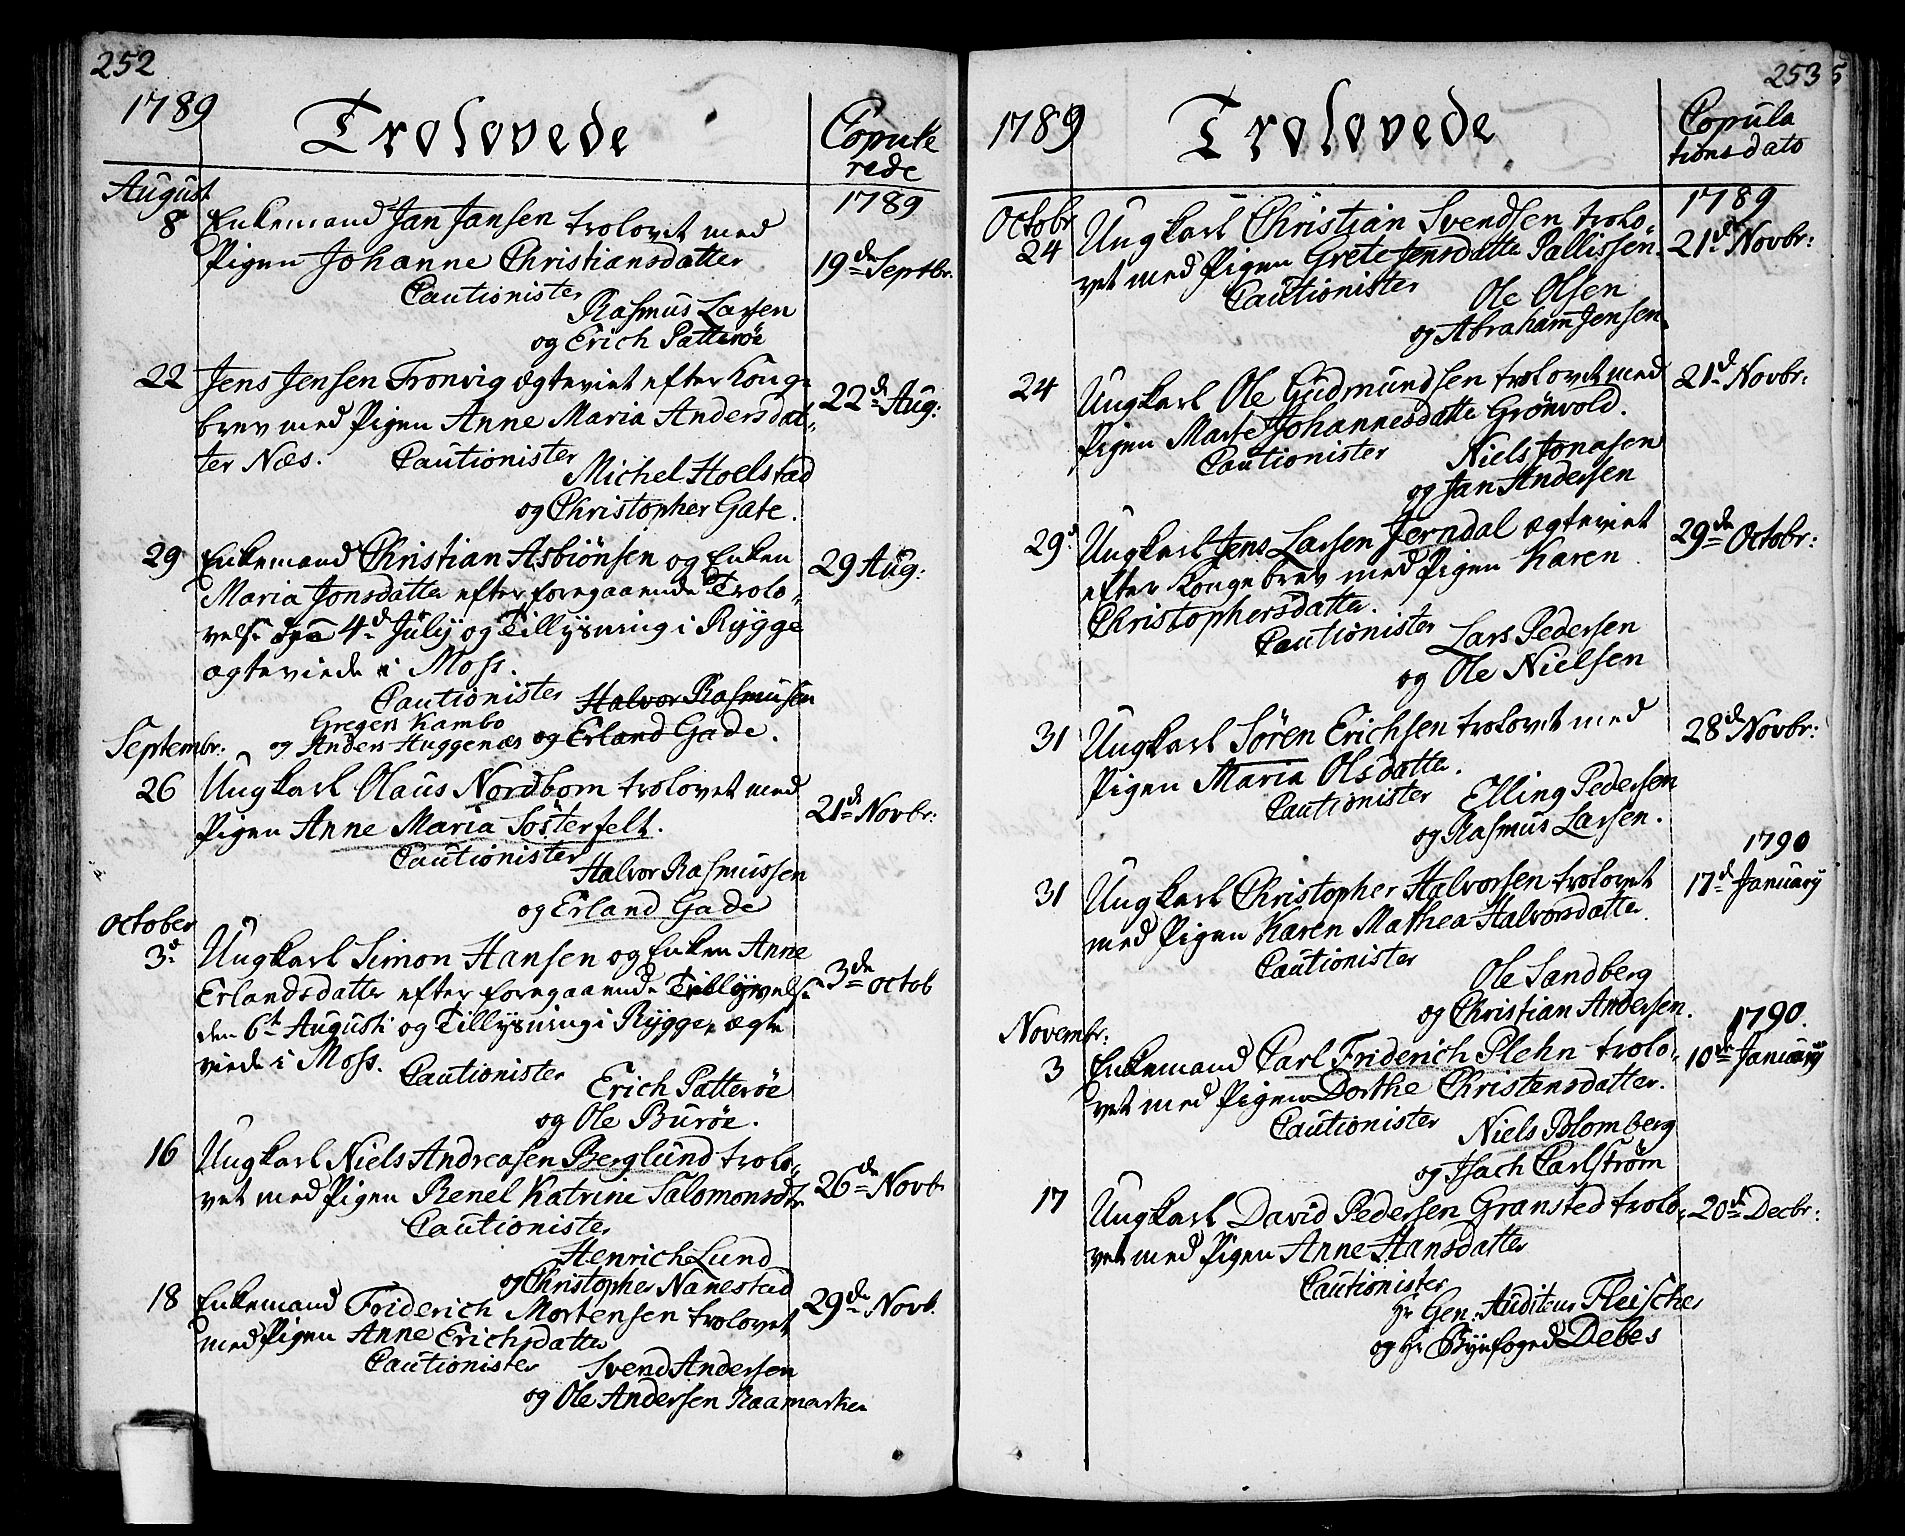 252
1789 Trolovede Copule
rede
1789
August
8 Enkemand Jan Jansen trolovet med
Pigen Johanne Christiansdatter 19de Septbr:
Cautionister
Rasmus Larsen
og Erich Patterøe
22 Jens Jensen Tronvig ægteviet efter Konge
brev med Pigen Anne Maria Andersdat- 22d Aug:
ter Næs. Cautionister
Michel Hoelstad
og Christopher Gate.
29 Enkemand Christian Asbiönsen og Enken 29 Aug:
Maria Jonsdatter efter foregaaende Trolo-
velse 4d July og Tillysning i Rygge
ægteviede i Moss.
Cautionister Halvor Rasmusen
Gregers Kambo og Erland Gade.
og Anders Huggenæs
Septembr:
26 Ungkarl Olaus Nordbom trolovet med
Pigen Anne Maria Sösterfelt. 21de Novbr:
Cautionister
Halvor Rasmussen
og Erland Gade
October
3d Ungkarl Simon Hansen og Enken Anne
Erlandsdatter efter foregaaende velse 3de octob
den 6te Augusti og Tillysning i Rygge, ægte
viede i Moss. Cautionister
Erich Patterøe
og Ole Burøe.
16 Ungkarl Niels Andreasen Berglund trolo-
vet med Pigen Renel Katrine Salomonsdtr 26de Novb
Cautionister
Henrich Lund
og Christopher Nanestad
18 Enkemand Friderich Mortensen trolovet 29de Novb.
med Pigen Anne Erichsdatter
Cautionister Svend Andersen
og Ole Andersen Raamarken
253
1789 Trolovede Copula
tions dato
1789
Octobr
24 Ungkarl Christian Svendsen trolo- 21d Novbr:
vet med Pigen Grete Jensdatter Pallissen.
Cautionister Ole Olsen
og Abraham Jensen
24 Ungkarl Ole Gudmundsen trolovet med 21d Novbr:
Pigen Marte Johannesdatter Grönvold.
Cautionister Niels Jonasen
og Jan Andersen
29d Ungkarl Jens Larsen Jerndal ægteviet 29de Octobr:
efter Kongebrev med Pigen Karen
Christophersdatter.
Cautionister Lars Pedersen
og Ole Nielsen
31 Ungkarl Søren Erichsen trolovet med 28d Novbr:
Pigen Maria Olsdatter.
Cautionister Elling Pedersen
og Rasmus Larsen.
1790
31 Ungkarl Christopher Halvorsen trolovet 17d January
med Pigen Karen Mathea Halvorsdatter.
Cautionister
Ole Sandberg
og Christian Andersen.
Novembr: 1790.
3 Enkemand Carl Friderich Plehn trolo- 10de January
vet med Pigen Dorthe Christensdatter.
Cautionister Niels Blomberg
og Isach Carlstrøm
17 Ungkarl David Pedersen Gransted trolo- 20de Decbr:
vet med Pigen Anne Hansdatter
Cautionister
Hr Gen: Auditeur Fleischer
og Hr Byefoged Debes